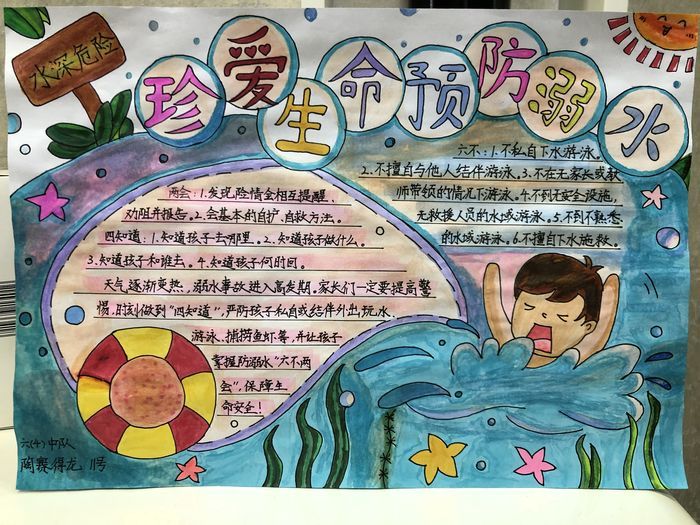 水深危险
珍爱生命预防溺水
六不：1.不私自下水游泳。
2.不擅自与他人结伴游泳。3.不在无家长或教
师带领的情况下游泳。4.不到无安全设施，
无救援人员的水域游泳。5.不到不熟悉
的水域游泳。6.不擅自下水施救。
两会：1.发现险情会相互提醒、
劝阻并报告。2.会基本的自护、自救方法。
四知道：1.知道孩子去哪里。2.知道孩子做什么。
3.知道孩子和谁去。4.知道孩子何时回。
天气逐渐变热，溺水事故进入高发期。家长们一定要提高警
惕，时刻做到“四知道”，严防孩子私自或结伴外出玩水、
游泳、捕捞鱼虾等，并让孩子
掌握防溺水“六不两
会”，保障生
命安全！
六(4)中队
陶赛得龙 11号